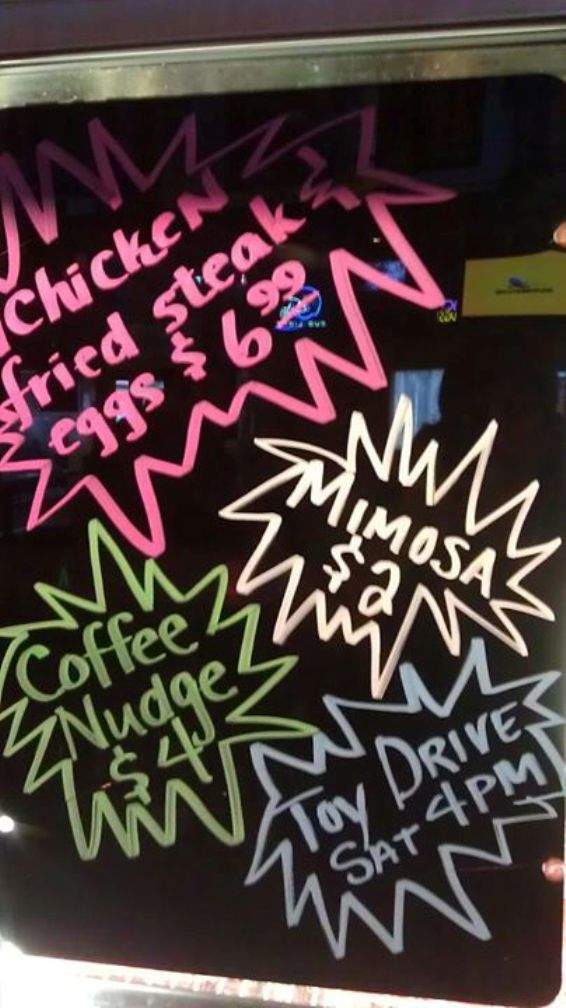 Chicken
fried steak
eggs $6.99
MIMOSA
$2
Coffee
Nudge
$4
Toy DRIVE
SAT 4PM